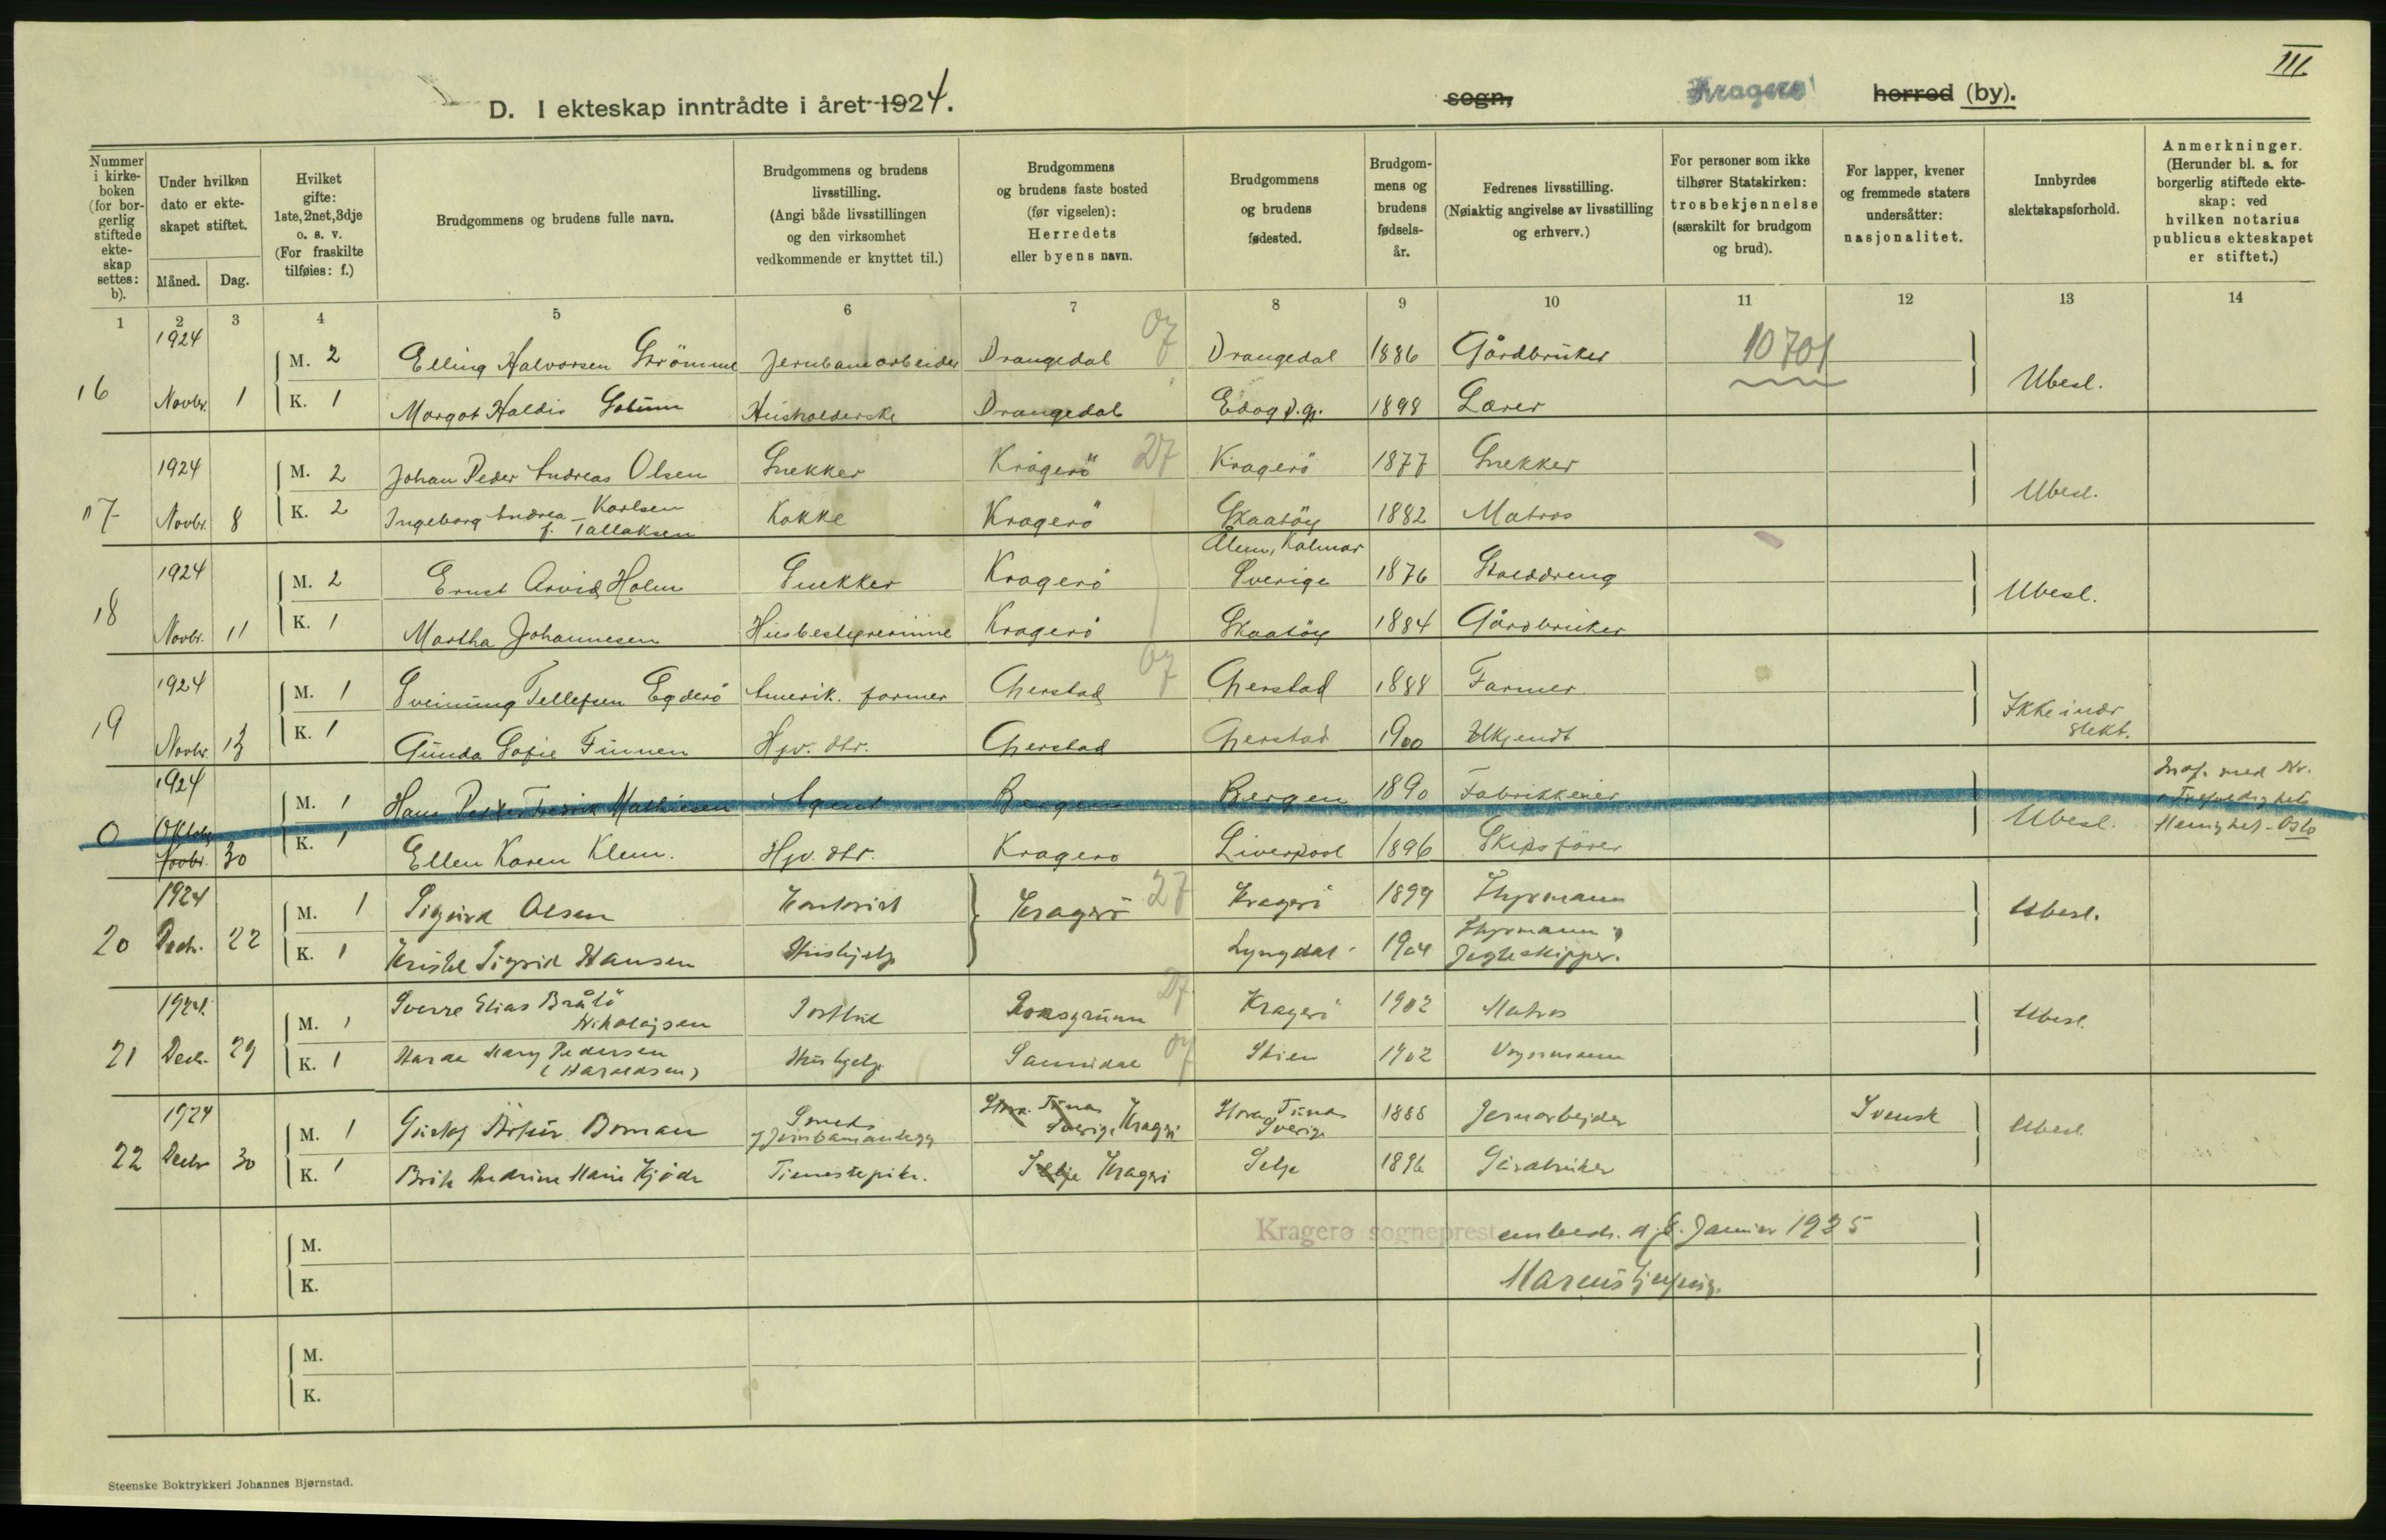 III
D. I ekteskap inntrådte i året 1924. sogn, Kragerø herred (by).
Nummer i kirkeboken (for borgerlig stiftede ekteskap settes: b).
Under hvilken dato er ekteskapet stiftet.
Måned. Dag.
Hvilket gifte: 1ste, 2net, 3dje o. s. v. (For fraskilte tilføies: f.)
Brudgommens og brudens fulle navn.
Brudgommens og brudens livsstilling. (Angi både livsstillingen og den virksomhet vedkommende er knyttet til.)
Brudgommens og brudens faste bosted (før vigselen): Herredets eller byens navn.
Brudgommens og brudens fødested.
Brudgommens og brudens fødselsår.
Fedrenes livsstilling. (Nøiaktig angivelse av livsstilling og erhverv.)
For personer som ikke tilhører Statskirken: trosbekjennelse (særskilt for brudgom og brud).
For lapper, kvener og fremmede staters undersåtter: nasjonalitet.
Innbyrdes slektskapsforhold.
Anmerkninger. (Herunder bl. a. for borgerlig stiftede ekteskap: ved hvilken notarius publicus ekteskapet er stiftet.)
1 2 3 4 5 6 7 8 9 10 11 12 13 14
1924 M. 2 Elling Halvorsen Strömme Jernbanearbeider Drangedal 07 Drangedal 1886 Gårdbruker 10701
16 Novbr. 1 K. 1 Margot Haldis Solum Husholderske Drangedal Edøy p.gj. 1898 Lærer Ubesl.
1924 M. 2 Johan Peder Andreas Olsen Snekker Kragerö 27 Kragerö 1877 Snekker
17 Novbr. 8 K. 2 Ingeborg Andrea Karlsen f. Tallaksen Kokke Kragerö Skaatöy 1882 Matros Ubesl.
1924 M. 2 Ernst Arvid Holm Snekker Kragerö Ålem, Kalmar Sverige 1876 Stalddreng
18 Novbr. 11 K. 1 Martha Johannesen Husbestyrerinne Kragerö Skaatöy 1884 Gårdbruker Ubesl.
1924 M. 1 Sveinung Tellefsen Egderö Amerik. farmer Gjerstad 07 Gjerstad 1888 Farmer
19 Novbr. 13 K. 1 Gunda Sofie Finnen Hjv. dtr. Gjerstad Gjerstad 1900 Ukjendt Ikke i nær slekt.
1924 M. 1 Hans Petter Fredrik Mathiesen Agent Bergen Bergen 1890 Fabrikkeier
0 Oktobr. Novbr. 30 K. 1 Ellen Karen Klem. Hjv. dtr. Kragerö Liverpool 1896 Skipsförer Ubesl. med Nr. i Trefoldighets Menighet - Oslo
1924 M. 1 Sigurd Olsen Kontorist Kragerö 27 Kragerö 1899 Styrmann
20 Decbr. 22 K. 1 Kristel Sigrid Hansen Hushjelp Lyngdal 1904 Styrmann, Jagteskipper. Ubesl.
1924 M. 1 Sverre Elias Bråtö Nikolaisen Postbud Porsgrunn 27 Kragerö 1902 Matros
21 Decbr. 29 K. 1 Mary Pedersen (Haraldsen) Hushjelp Sannidal 07 Skien 1902 Vognmann Ubesl.
1924 M. 1 Gustaf Artur Boman Smed Jernbaneanlegg Stora Tuna Sverige Kragerö Stora Tuna Sverige 1888 Jernarbejder Svensk
22 Decbr 30 K. 1 Brite Andrine Marie Kjöde Tjenestepike. Selje Kragerö Selje 1896 Gårdbruker Ubesl.
M. Kragerø sogneprest embede. d. 8. Januar 1925
K.
M.
K.
Steenske Boktrykkeri Johannes Bjørnstad.